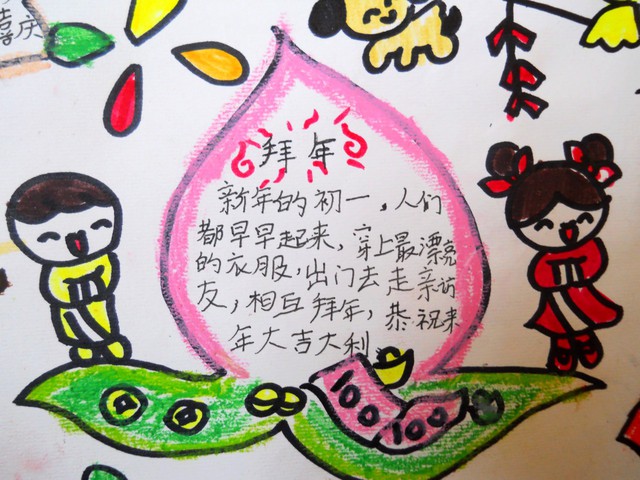 喜庆
拜年
新年的初一，人们
都早早起来，穿上最漂亮
的衣服，出门去走亲访
友，相互拜年，恭祝来
年大吉大利
100
100